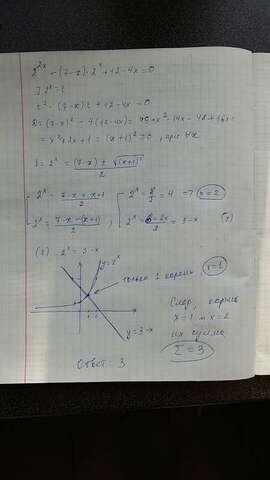 2^{2x} - (7-x)·2^x + 12 - 4x = 0
] 2^x = t
t² - (7-x)t + 12 - 4x = 0
D = (7-x)² - 4(12-4x) = 49 + x² - 14x - 48 + 16x =
= x² + 2x + 1 = (x+1)² ≥ 0, при ∀x
t = 2^x = \frac{(7-x) ± √(x+1)²}{2}
2^x = \frac{7-x+x+1}{2}
2^x = \frac{7-x-(x+1)}{2} ,
2^x = \frac{8}{2} = 4 => x=2
2^x = \frac{6-2x}{2} = 3-x (1)
(1) 2^x = 3-x
y=2^x
только 1 корень, x=1
y=3-x
След, корни
x=1 и x=2
их сумма
Σ=3
Ответ: 3